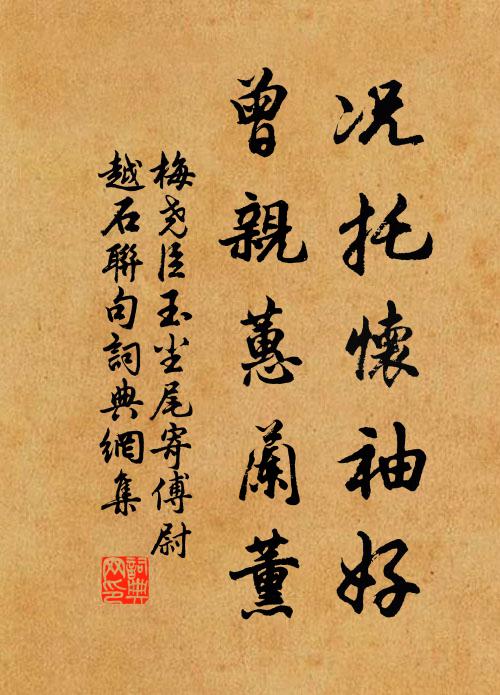 况托懷袖好
曾親蕙蘭薰
梅堯臣玉尘尾寄傅尉
越石聯句詞典網集
詞典
网印